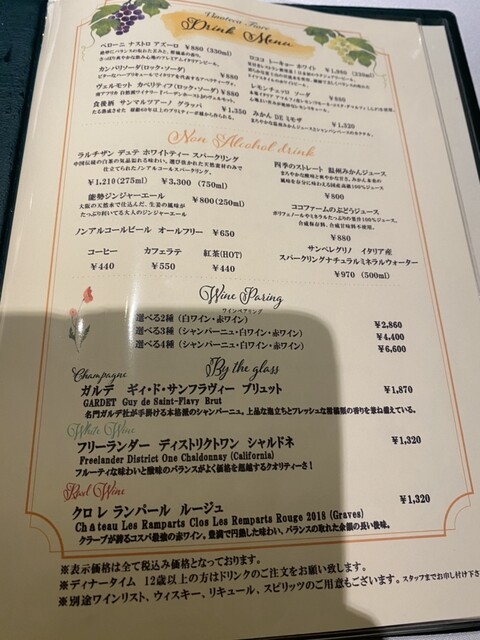 Drink Menu
ペローニ ナストロ アズーロ ¥880 (330ml)
カンパリソーダ(ロック・ソーダ) ¥880
ヴェルモット カペリティフ(ロック・ソーダ) ¥880
食後酒 サンマルツアーノ グラッパ ¥1,350
ロココ トーキョー ホワイト ¥1,980 (330ml)
レモンチェッロ ソーダ ¥880
みかん DE ミモザ ¥880
Non Alcohol drink
ラルチザン デュテ ホワイトティー スパークリング
中国伝統の白茶の気品溢れる味わい。選び抜かれた天然素材のみで
仕立てられたノンアルコールスパークリング。
¥1,210(275ml) ¥3,300 (750ml)
能勢ジンジャーエール ¥800(250ml)
大阪の天然水で仕込んだ、生姜の風味が
たっぷり利いてる大人のジンジャーエール
ノンアルコールビール オールフリー ¥650
コーヒー カフェラテ 紅茶(HOT)
¥440 ¥550 ¥440
四季のストレート 温州みかんジュース
ココファームのぶどうジュース
ポリフェノールやミネラルたっぷりの果汁100%ジュース。
合成保存料、合成甘味料不使用。
¥880
サンペレグリノ イタリア産
スパークリングナチュラルミネラルウォーター
¥970 (500ml)
Wine Paring
ワインペアリング
選べる2種 (白ワイン・赤ワイン) ¥2,860
選べる3種 (シャンパーニュ・白ワイン・赤ワイン) ¥4,400
選べる4種 (シャンパーニュ・白ワイン・赤ワイン) ¥6,600
By the glass
Champagne
ガルデ ギィ・ド・サンフラヴィー ブリュット ¥1,870
GARDET Guy de Saint-Flavy Brut
名門ガルデ社が手掛ける本格派のシャンパーニュ。上品な泡立ちとフレッシュな柑橘類の香りを兼ね備えている。
White Wine
フリーランダー ディストリクトワン シャルドネ ¥1,320
Freelander District One Chaldonnay (California)
フルーティな味わいと酸味のバランスがよく価格を超越するクオリティーさ!
Red Wine
クロ レ ランパール ルージュ ¥1,320
Château Les Ramparts Clos Les Remparts Rouge 2018 (Graves)
グラーブが誇るコスパ最強の赤ワイン。豊満で円熟した味わい、バランスの取れた余韻の長い後味。
※表示価格は全て税込み価格となっております。
※ディナータイム 12歳以上の方はドリンクのご注文をお願い致します。
※別途ワインリスト、ウィスキー、リキュール、スピリッツのご用意もございます。スタッフまでお申し付け下さ